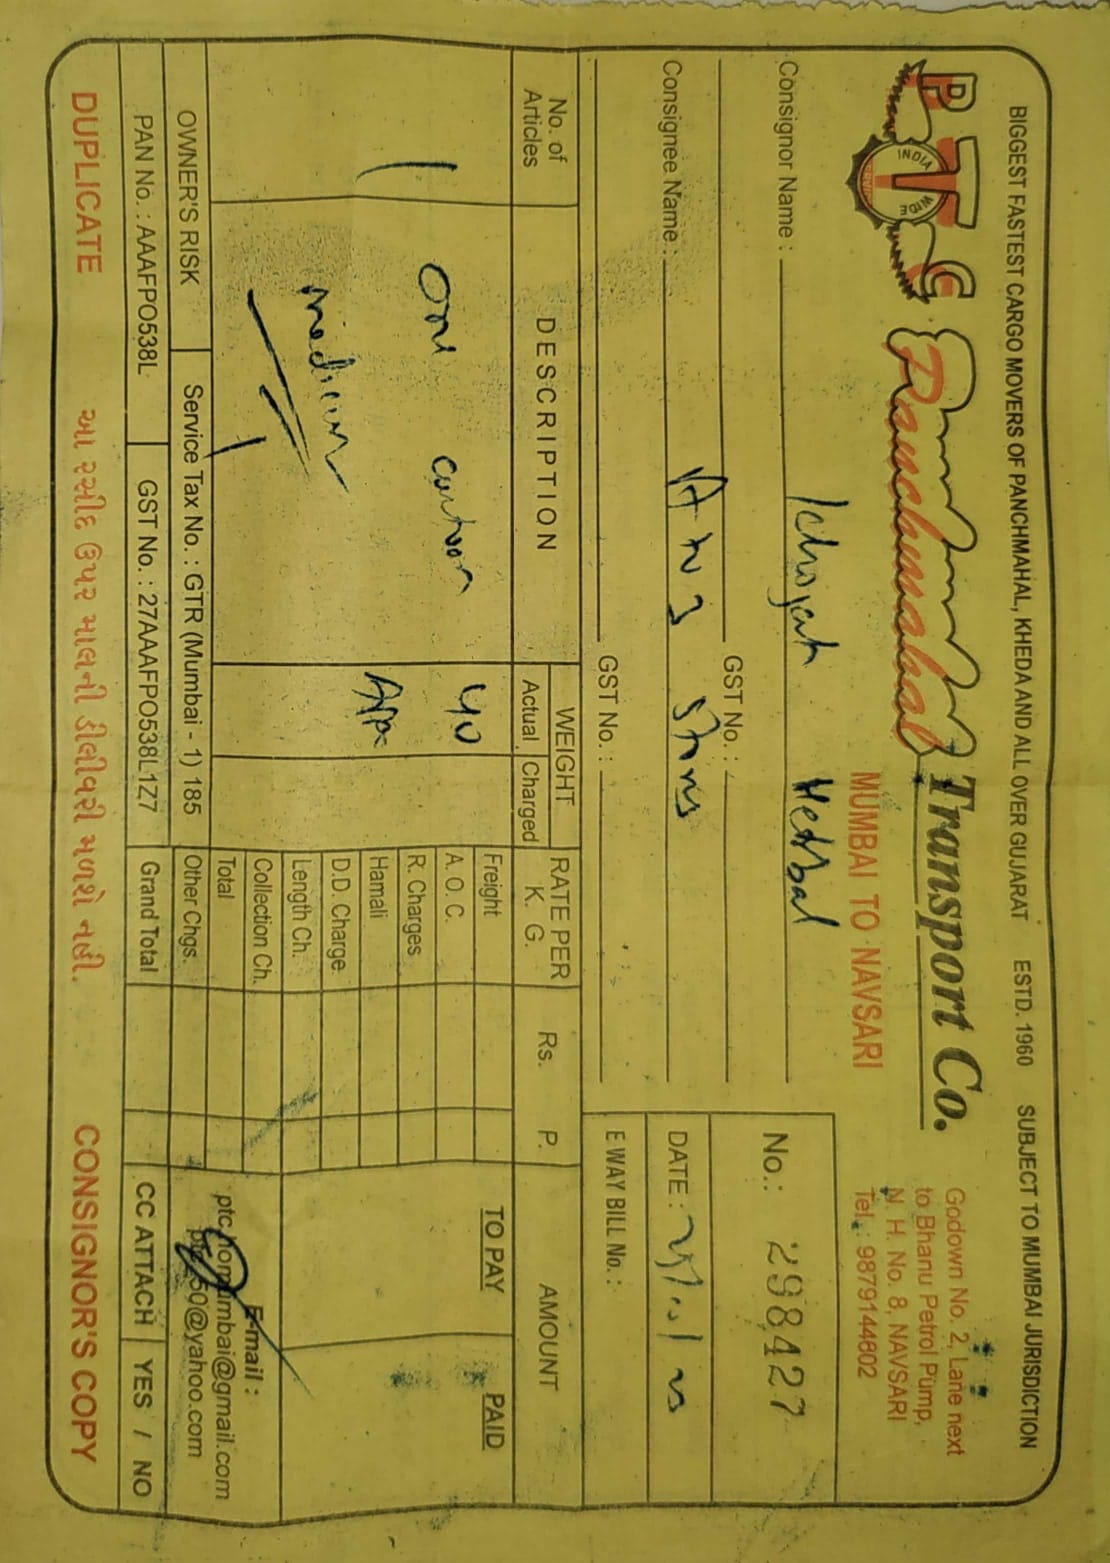 BIGGEST FASTEST CARGO MOVERS OF PANCHMAHAL, KHEDA AND ALL OVER GUJARAT ESTD. 1960 SUBJECT TO MUMBAI JURISDICTION
PTC
INDIA WIDE
Panchmahal Transport Co.
MUMBAI TO NAVSARI
Godown No. 2, Lane next
to Bhanu Petrol Pump,
N. H. No. 8, NAVSARI
Tel.: 9879144802
Consignor Name : Herbal
GST No. :
Consignee Name :
GST No. :
No.: 298427
DATE :
E WAY BILL No. :
No. of Articles
DESCRIPTION
WEIGHT
Actual Charged
RATE PER K. G.
Rs. P.
AMOUNT
TO PAY PAID
1
One cartoon
40
Freight
A. O. C.
R. Charges
Hamali
D.D. Charge
Length Ch.
Collection Ch.
Total
E-mail :
@gmail.com
@yahoo.com
OWNER'S RISK Service Tax No. : GTR (Mumbai - 1) 185 Other Chgs.
PAN No. : AAAFPO538L GST No. : 27AAAFPO538L1Z7 Grand Total CC ATTACH YES / NO
DUPLICATE આ રસીદ ઉપર માલની ડીલીવરી મળશે નહી. CONSIGNOR'S COPY